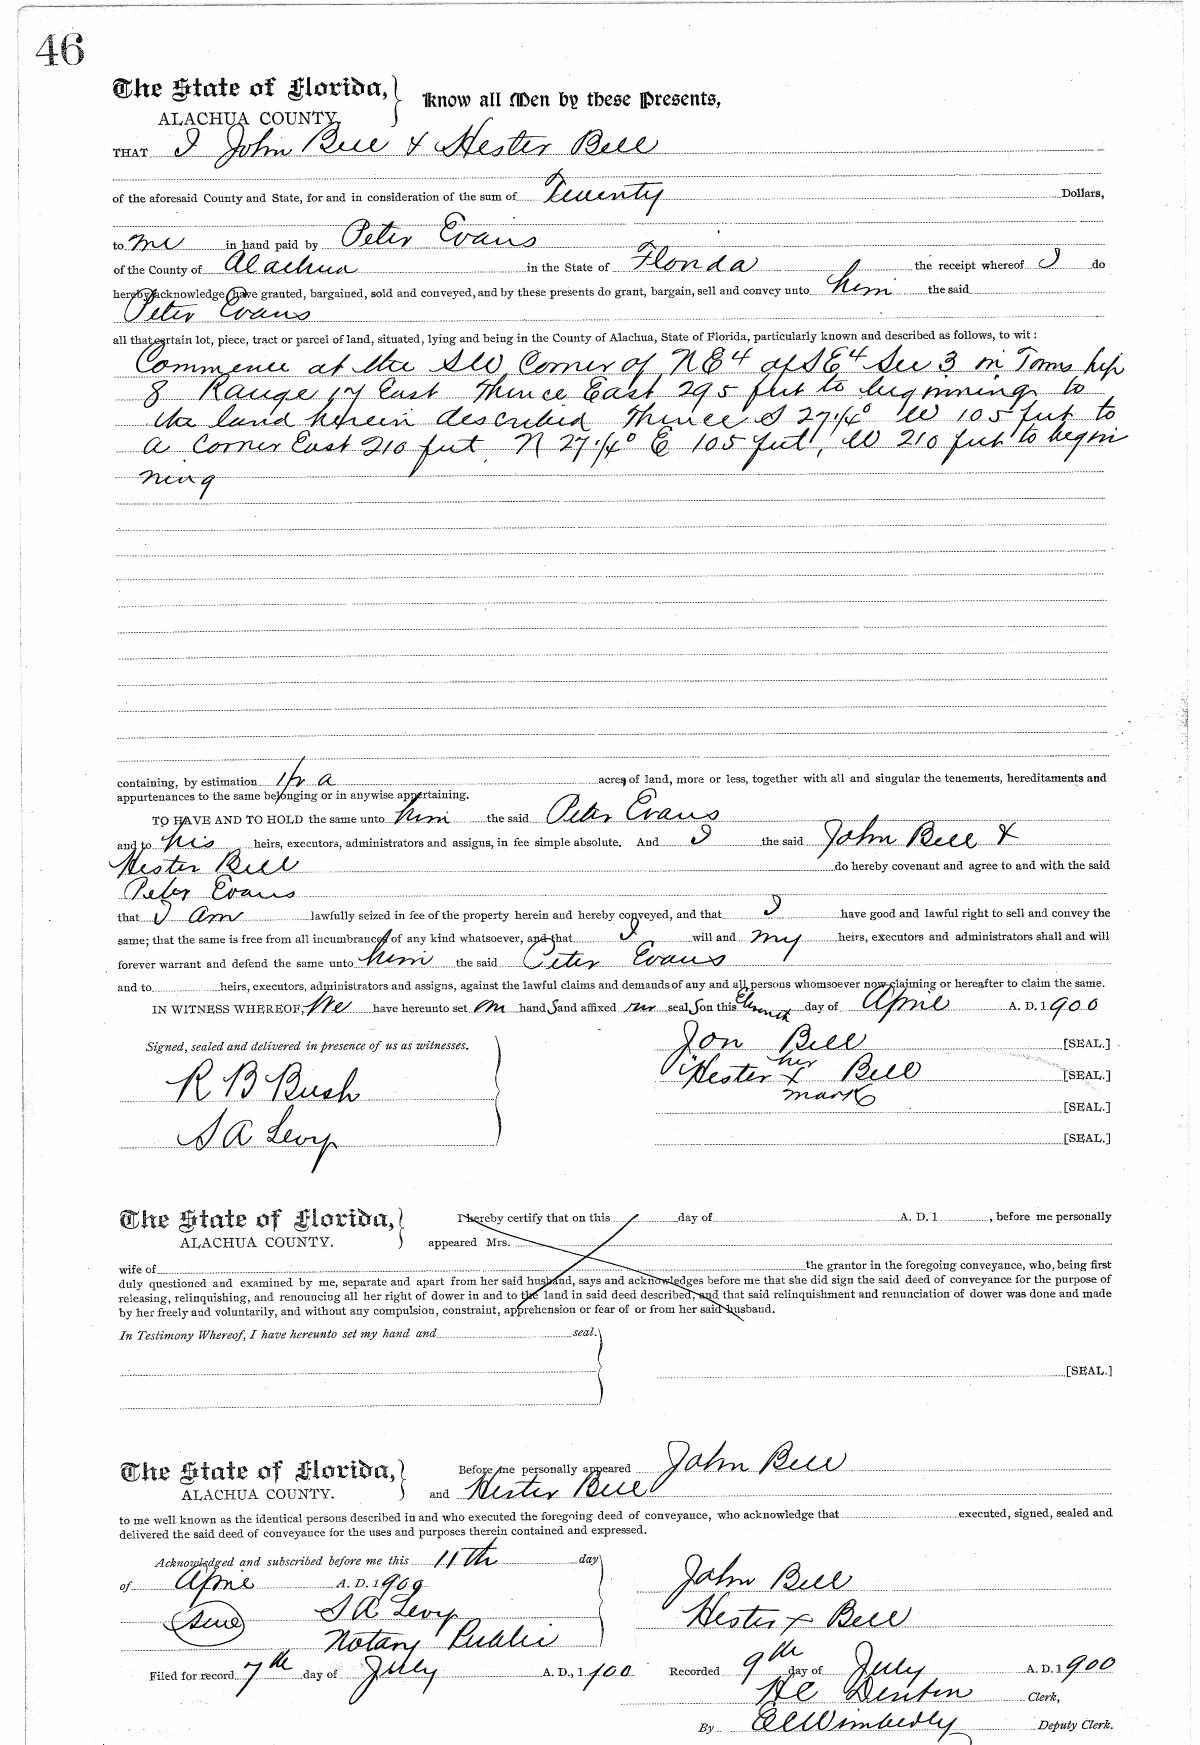 46
The State of Florida, Know all Men by these Presents,
ALACHUA COUNTY.
THAT I John Bell & Hester Bell
of the aforesaid County and State, for and in consideration of the sum of Twenty Dollars,
to me in hand paid by Peter Evans
of the County of Alachua in the State of Florida the receipt whereof I do
hereby acknowledge have granted, bargained, sold and conveyed, and by these presents do grant, bargain, sell and convey unto him the said
Peter Evans
all that certain lot, piece, tract or parcel of land, situated, lying and being in the County of Alachua, State of Florida, particularly known and described as follows, to wit:
Commence at the SW Corner of NE4 of SE4 Sec 3 in Township
8 Range 17 East Thence East 295 feet to beginning to
the land herein described Thence S 27 1/4° W 105 feet to
a Corner East 210 feet, N 27 1/4° E 105 feet, W 210 feet to begin
ning
containing, by estimation 1/2 a acres of land, more or less, together with all and singular the tenements, hereditaments and
appurtenances to the same belonging or in anywise appertaining.
TO HAVE AND TO HOLD the same unto him the said Peter Evans
and to his heirs, executors, administrators and assigns, in fee simple absolute. And I the said John Bell &
Hester Bell do hereby covenant and agree to and with the said
Peter Evans
that I am lawfully seized in fee of the property herein and hereby conveyed, and that I have good and lawful right to sell and convey the
same; that the same is free from all incumbrances of any kind whatsoever, and that I will and my heirs, executors and administrators shall and will
forever warrant and defend the same unto him the said Peter Evans
and to heirs, executors, administrators and assigns, against the lawful claims and demands of any and all persons whomsoever now claiming or hereafter to claim the same.
IN WITNESS WHEREOF, We have hereunto set our hands and affixed our seals on this Eleventh day of April A. D. 1900
Signed, sealed and delivered in presence of us as witnesses. Jon Bell [SEAL.]
her
R B Bush Hester x Bell [SEAL.]
mark [SEAL.]
S A Levy [SEAL.]
The State of Florida, I hereby certify that on this day of A. D. 1 , before me personally
ALACHUA COUNTY. appeared Mrs.
wife of the grantor in the foregoing conveyance, who, being first
duly questioned and examined by me, separate and apart from her said husband, says and acknowledges before me that she did sign the said deed of conveyance for the purpose of
releasing, relinquishing, and renouncing all her right of dower in and to the land in said deed described, and that said relinquishment and renunciation of dower was done and made
by her freely and voluntarily, and without any compulsion, constraint, apprehension or fear of or from her said husband.
In Testimony Whereof, I have hereunto set my hand and seal.
[SEAL.]
The State of Florida, Before me personally appeared John Bell
ALACHUA COUNTY. and Hester Bell
to me well known as the identical persons described in and who executed the foregoing deed of conveyance, who acknowledge that executed, signed, sealed and
delivered the said deed of conveyance for the uses and purposes therein contained and expressed.
Acknowledged and subscribed before me this 11th day
of April A. D. 1900 John Bell
Seal S A Levy Hester x Bell
Notary Public
Filed for record 7th day of July A. D., 1900 Recorded 9th day of July A. D. 1900
H C Denton Clerk,
By E C Wimberly Deputy Clerk.